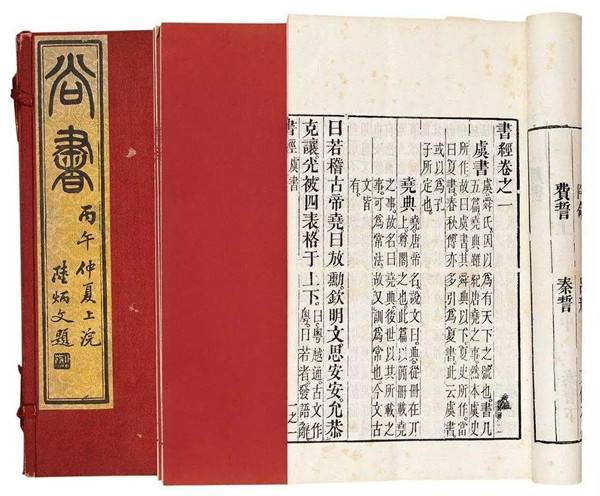 尚書
丙午仲夏上浣
陸炳文題
費誓
秦誓
書經卷之一
虞書
虞舜氏因以爲有天下之號也書凡
五篇堯典雖紀唐堯之事然本虞史
所作故曰虞書其舜典以下夏史所作當
曰夏書春秋傳亦多引爲夏書此云虞書
或以爲孔
子所定也
堯典
堯唐帝名說文曰典從冊在丌
上尊閣之也此篇以簡冊載堯
之事故名曰堯典後世以其所載之
事可爲常法故又訓爲常也今文古
文皆
有
曰若稽古帝堯曰放勳欽明文思安安允恭
克讓光被四表格于上下
曰粵越通古文作
粵曰若者發語辭
書經虞書
一之一